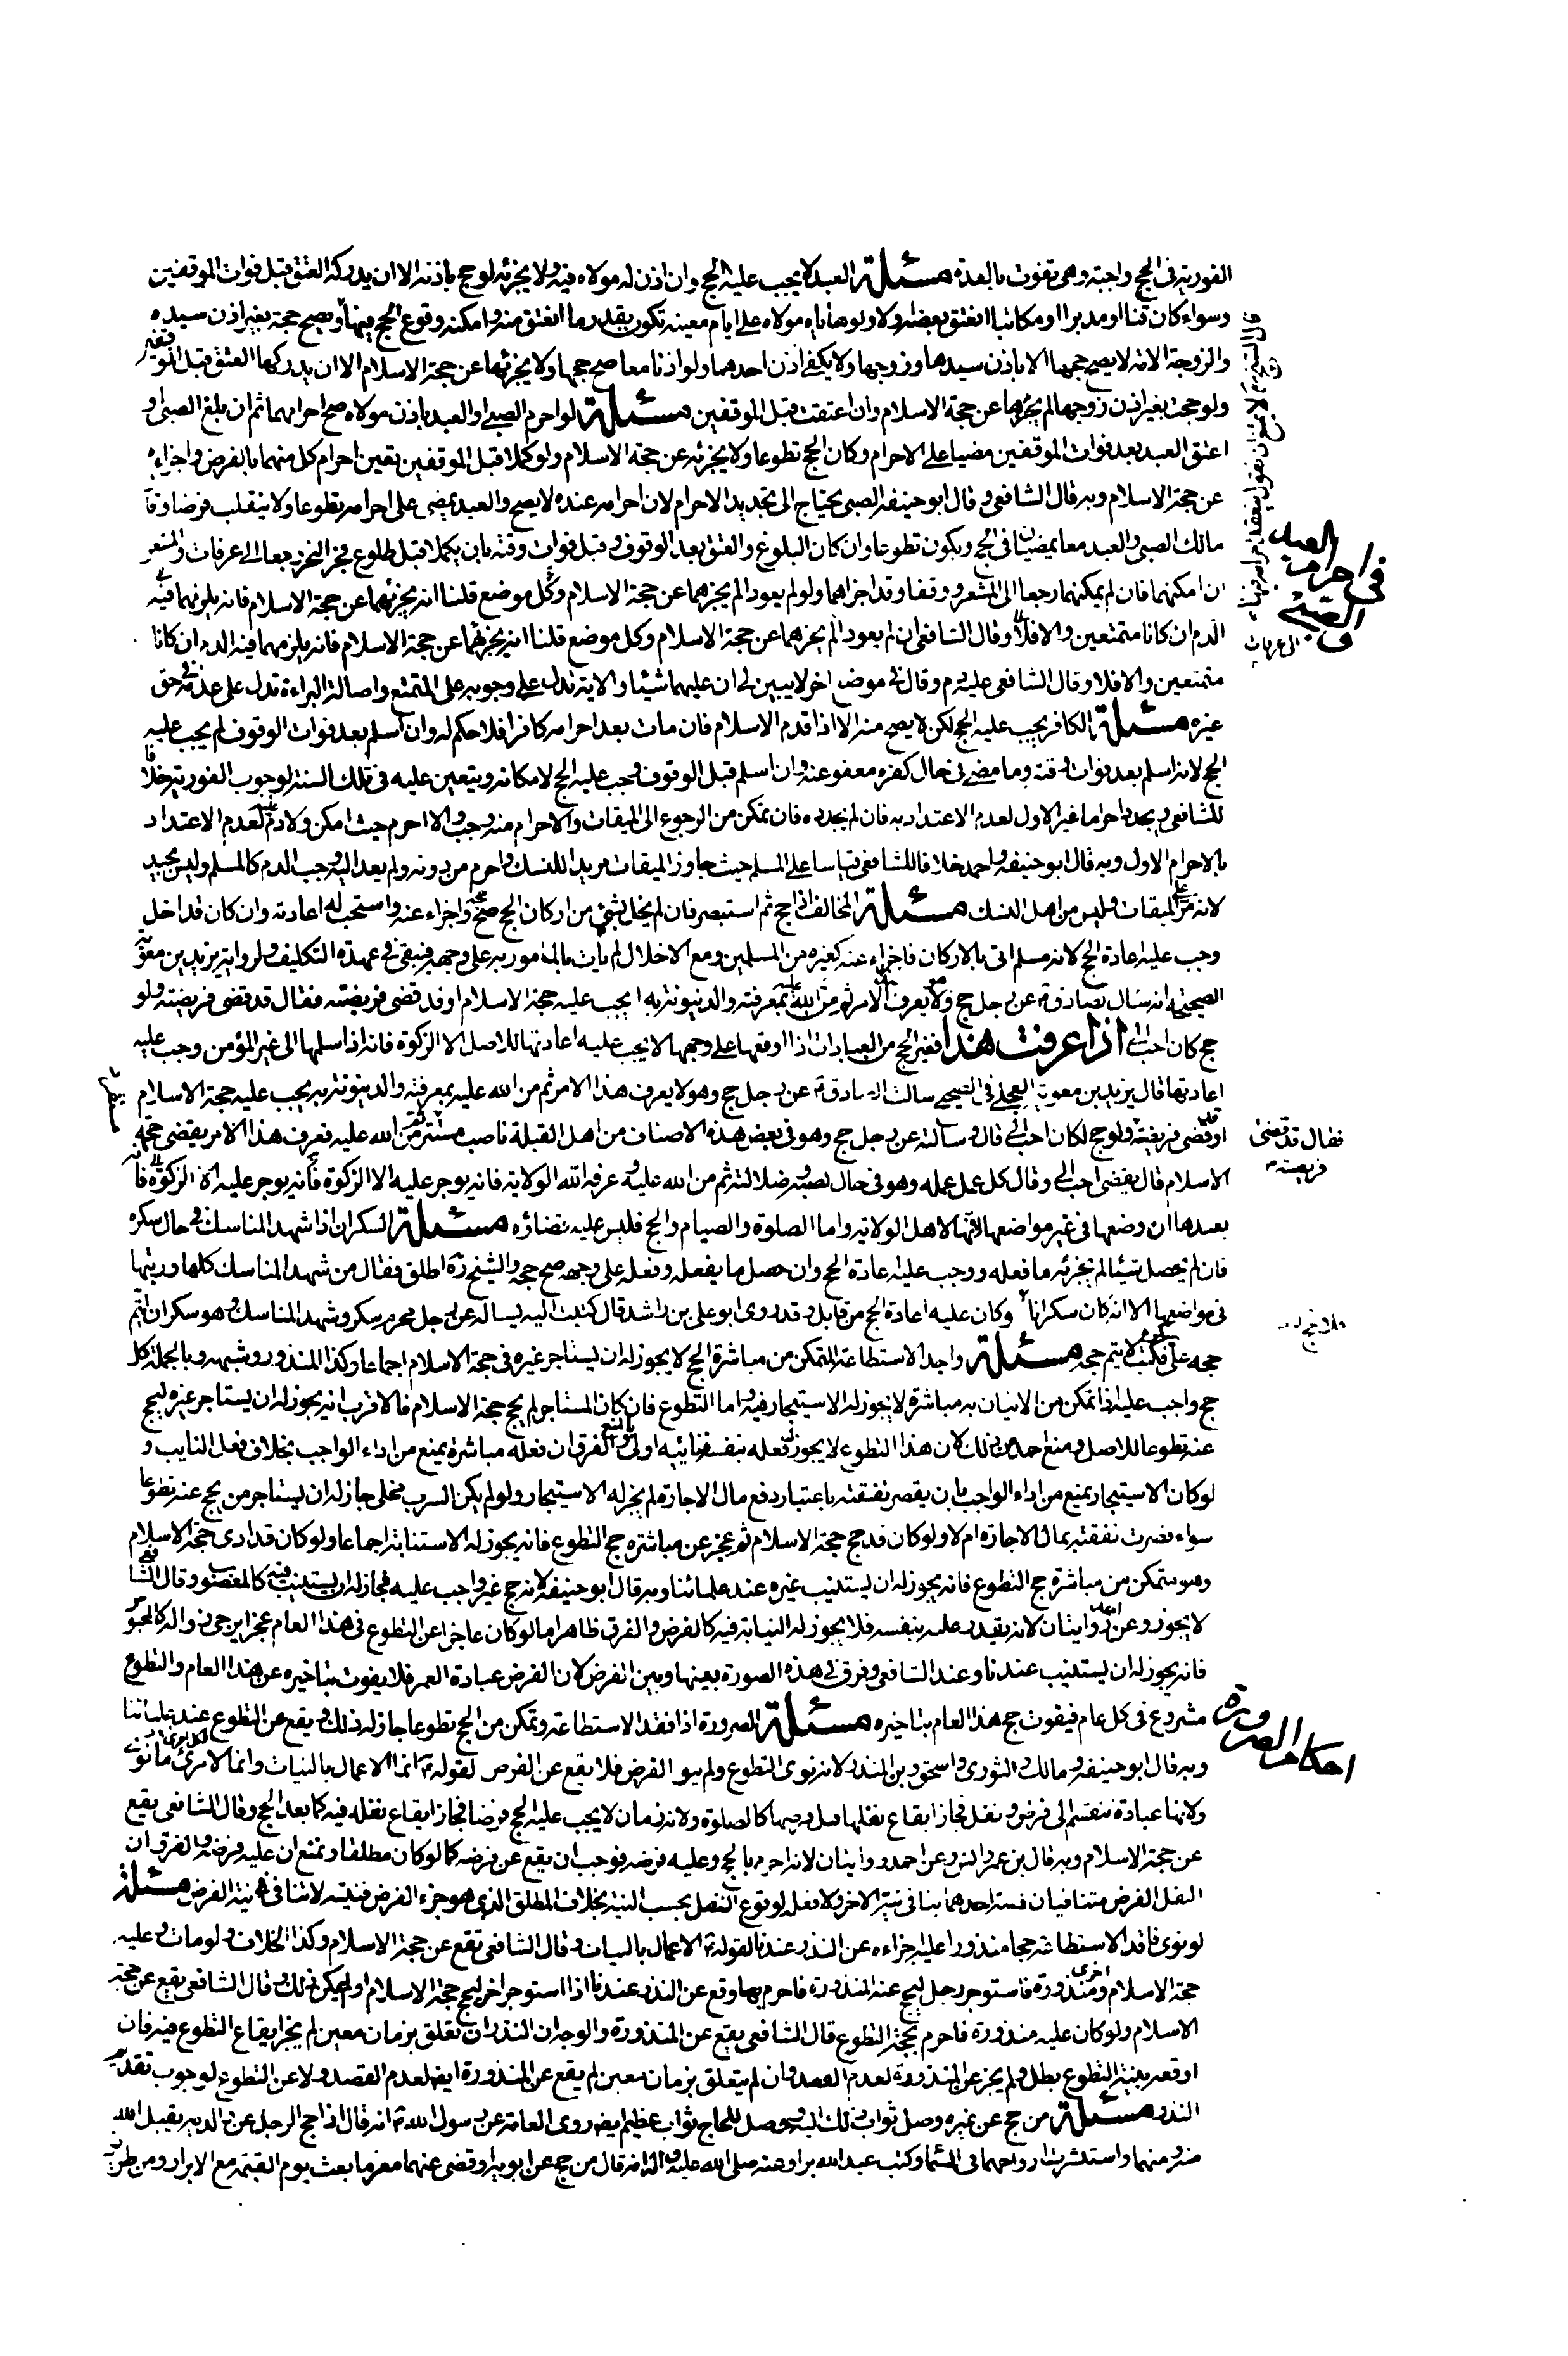 الفورية فى الحج واجبة وهى تفوت بالعدة مسئلة العبد لا يجب عليه الحج وان اذن له مولاه فيه ولا يجزئه لو حج باذنه الا ان يدركه العتق قبل فوات الموقفين
وسواء كان قنا او مدبرا او مكاتبا انعتق بعضه او لا ولو هاياه مولاه على ايام معينة تكون بقدر ما انعتق منه وامكنه وقوع الحج فيها او يصح حجة بغير اذن سيده
والزوجة الامة لا يصح حجها الا باذن سيدها وزوجها ولا يكفى اذن احدهما ولو اذنا معا صح حجها ولا يجزئها عن حجة الاسلام الا ان يدركها العتق قبل الموقفين
ولو حجت بغير اذن زوجها لم يجزها عن حجة الاسلام وان اعتقت قبل الموقفين مسئلة لو احرم الصبى او العبد باذن مولاه صح احرامهما ثم ان بلغ الصبى او
اعتق العبد بعد فوات الموقفين مضيا على الاحرام وكان الحج تطوعا ولا يجزئه عن حجة الاسلام ولو كملا قبل الموقفين تعين احرام كل منهما بالفرض واجزاءه
عن حجة الاسلام وبه قال الشافعى وقال ابو حنيفة الصبى يحتاج الى تجديد الاحرام لان احرامه عنده لا يصح والعبد يمضى على احرامه تطوعا ولا ينقلب فرضا وقال
مالك الصبى والعبد معا يمضيان فى الحج ويكون تطوعا وان كان البلوغ والعتق بعد الوقوف وقبل فوات وقته بان يكملا قبل طلوع فجر النحر رجعا الى عرفات والمشعر
ان امكنهما فان لم يمكنهما رجعا الى المشعر ووقفا وقد اجزاهما ولو لم يعودا لم يجزهما عن حجة الاسلام وكل موضع قلنا انه يجزئهما عن حجة الاسلام فانه يلزمهما فيه
الدم ان كانا متمتعين والا فلا وقال الشافعى ان لم يعودا لم يجزهما عن حجة الاسلام وكل موضع قلنا انه يجزئهما عن حجة الاسلام فانه يلزمهما فيه الدم ان كانا
متمتعين والا فلا وقال الشافعى عليه دم وقال فى موضع اخر لا يبين لى ان عليهما شيئا والاية تدل على وجوبه على المتمتع واصالة البراءة تدل على عدمه فى حق
غيره مسئلة الكافر يجب عليه الحج لكن لا يصح منه الا اذا قدم الاسلام فان مات بعد احرامه كافرا فلا حكم له وان اسلم بعد فوات الوقوف لم يجب عليه
الحج لانه اسلم بعد فوات وقته وما مضى فى حال كفره معفو عنه وان اسلم قبل الوقوف وجب عليه الحج لامكانه ويتعين عليه فى تلك السنة لوجوب الفورية خلافا
للشافعى ويجدد احراما غير الاول لعدم الاعتداد به فان لم يجدده فان تمكن من الرجوع الى الميقات والاحرام منه وجب والا احرم حيث امكن ولا دم عليه لعدم الاعتداد
بالاحرام الاول وبه قال ابو حنيفة واحمد خلافا للشافعى قياسا على المسلم حيث جاوز الميقات مريدا للنسك واحرم من دونه ولم يعد اليه وجب الدم كالمسلم وليس بجيد
لانه مر على الميقات وليس من اهل النسك مسئلة المخالف اذا حج ثم استبصر فان لم يخل بشئ من اركان الحج صح حجه واجزاء عنه واستحب له اعادته وان كان قد اخل
وجب عليه اعادة الحج لانه مسلم اتى بالاركان فاجزاء عنه كغيره من المسلمين ومع الاخلال لم يات بالمامور به على وجهه فيبقى فى عهدة التكليف ولرواية بريد بن معوية
الصحيحة انه سال الصادق ع عن رجل حج ولا يعرف هذا الامر ثم من الله عليه بمعرفته والدينونة به ايجب عليه حجة الاسلام او قد قضى فريضته فقال قد قضى فريضته ولو
حج كان احب الى اذا عرفت هذا فغير الحج من العبادات اذا اوقعها على وجهها لا يجب عليه اعادتها للاصل الا الزكوة فانه اذا سلمها الى غير المؤمن وجب عليه
اعادتها قال بريد بن معوية العجلى فى الصحيح سالت الصادق ع عن رجل حج وهو لا يعرف هذا الامر ثم من الله عليه بمعرفته والدينونة به يجب عليه حجة الاسلام
او قد قضى فريضته ولو حج لكان احب الى قال وسالته عن رجل حج وهو فى بعض هذه الاصناف من اهل القبلة ناصب متدين ثم من الله عليه فعرف هذا الامر يقضى حجة
الاسلام قال يقضى احب الى وقال كل عمل عمله وهو فى حال نصبه وضلالته ثم من الله عليه وعرفه الله الولاية فانه يوجر عليه الا الزكوة فانه
بعيدها لانه وضعها فى غير مواضعها لانها لاهل الولاية واما الصلوة والصيام والحج فليس عليه قضاؤه مسئلة السكران اذا شهد المناسك فى حال سكره
فان لم يحصل شيئا لم يجزئه ما فعله ووجب عليه اعادة الحج وان حصل ما يفعله وفعله على وجهه صح حجه والشيخ ره اطلق فقال من شهد المناسك كلها ورتبها
فى مواضعها الا انه كان سكرانا وكان عليه اعادة الحج من قابل وقد روى ابو على بن راشد قال كتبت اليه يساله عن رجل محرم سكر وشهد المناسك وهو سكران ايتم
حجه على سكره فكتب لا يتم حجه مسئلة واجد الاستطاعة المتمكن من مباشرة الحج لا يجوز له ان يستاجر غيره فى حجة الاسلام اجماعا وكذا المنذور وشبهه وبالجملة كل
حج واجب عليه اذا تمكن من الاتيان به مباشرة لا يجوز له الاستيجار فيه واما التطوع فان كان المستاجر لم يحج حجة الاسلام فالاقرب انه يجوز له ان يستاجر غيره ليحج
عنه تطوعا للاصل ومنع احمد من ذلك لان هذا التطوع لا يجوز له فعله بنفسه فنائبه اولى بالمنع والفرق ان فعله مباشرة يمنع من اداء الواجب بخلاف فعل النايب و
لو كان الاستيجار يمنع من اداء الواجب بان يقصر نفقته باعتبار دفع مال الاجارة لم يجز له الاستيجار ولو لم يكن السرب مخلى جاز له ان يستاجر من يحج عنه تطوعا
سواء قصرت نفقته بمال الاجارة ام لا ولو كان قد حج حجة الاسلام ثم عجز عن مباشرة حج التطوع فانه يجوز له الاستنابة اجماعا ولو كان قد ادى حجة الاسلام
وهو متمكن من مباشرة حج التطوع فانه يجوز له ان يستنيب غيره عند علمائنا وبه قال ابو حنيفة لانه حج غير واجب عليه فجاز له ان يستنيب فيه كالمعضوب وقال الشافعى
لا يجوز وعن احمد روايتان لانه يقدر عليه بنفسه فلا يجوز له النيابة فيه كالفرض والفرق ظاهر اما لو كان عاجزا عن التطوع فى هذا العام عجزا يرجى زواله كالمحبوس
فانه يجوز له ان يستنيب عندنا وعند الشافعى وفرق فى هذه الصورة بينها وبين الفرض لان الفرض عبادة العمر فلا يفوت بتاخيره عن هذا العام والتطوع
مشروع فى كل عام فيفوت حج هذا العام بتاخيره مسئلة الصرورة اذا فقد الاستطاعة وتمكن من الحج تطوعا جاز له ذلك ويقع عن التطوع عند علمائنا
وبه قال ابو حنيفة ومالك والثورى واسحق وبن المنذر لانه نوى التطوع ولم ينو الفرض فلا يقع عن الفرض لقوله ع انما الاعمال بالنيات وانما لامرئ ما نوى
ولانها عبادة تنقسم الى فرض ونفل فجاز ايقاع نفلها قبل فرضها كالصلوة ولانه زمان لا يجب عليه الحج فرضا فجاز ايقاع نفله فيه كما بعد الحج وقال الشافعى يقع
عن حجة الاسلام وبه قال بن عمر وانس وعن احمد روايتان لانه احرم بالحج وعليه فرضه فوجب ان يقع عن فرضه كما لو كان مطلقا ونمنع ان عليه فرضه والفرق ان
النفل الفرض متنافيان فنية احدهما ينافى نية الاخر ولا فعله لوقوع الفعل بحسب النية بخلاف المطلق الذى هو جزء الفرض فنيته لا تنافى نية الفرض مسئلة
لو نوى فاقد الاستطاعة حجا منذورا عليه اجزاءه عن النذر عندنا لقوله ع الاعمال بالنيات وقال الشافعى تقع عن حجة الاسلام وكذا الخلاف ولو مات وعليه
حجة الاسلام واخرى منذورة فاستوجر رجل ليحج عنه المنذورة فاحرم بها وقع عن النذر عندنا اذا استوجر اخر ليحج حجة الاسلام او لم يكن ذلك وقال الشافعى يقع عن حجة
الاسلام ولو كان عليه منذورة فاحرم بحجة التطوع قال الشافعى يقع عن المنذورة والوجه ان النذر ان تعلق بزمان معين لم يجز ايقاع التطوع فيه فان
اوقعه بنية التطوع بطل ولم يجز عن المنذورة لعدم القصد وان لم يتعلق بزمان معين لم يقع عن المنذورة ايضا لعدم القصد ولا عن التطوع لوجوب تقديم
النذر مسئلة من حج عن غيره وصل ثواب ذلك اليه وحصل للحاج ثواب عظيم ايضا روى العامة عن رسول الله ص انه قال اذا حج الرجل عن والديه يقبل الله
منه ومنهما واستبشرت ارواحهما فى السماء وكتب عبد الله برا وعنه صلى الله عليه واله انه قال من حج عن ابويه او قضى عنهما مغرما بعث يوم القيمة مع الابرار ومن طريق
فى احرام العبد
والصبى
فقال قد قضى
فريضته
احكام الصرورة